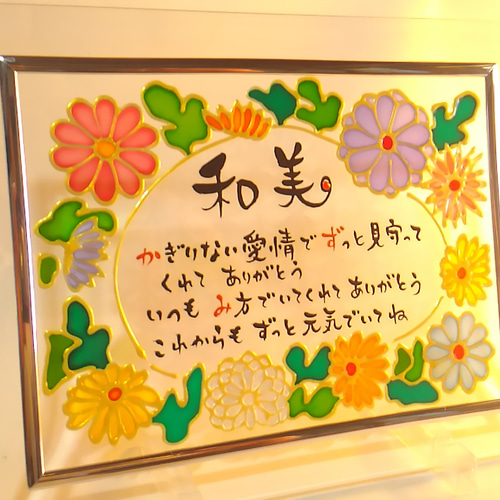 和美
かぎりない愛情でずっと見守って
くれて ありがとう
いつも み方でいてくれて ありがとう
これからも ずっと元気でいてね